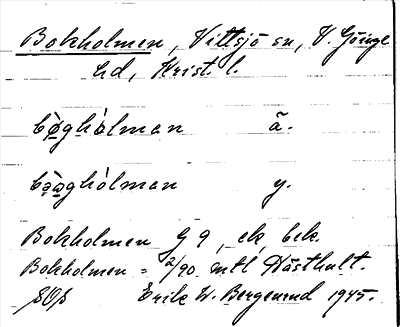 Bokholmen, Vittsjö sn, V. Göinge
hd, Krist. l.
bo̤ghòlman ä.
bəo̤ghòlman y.
Bokholmen G 9, ek, bek.
Bokholmen = 2/90 mtl Hästhult.
SOS Erik W. Bergsrud 1945.